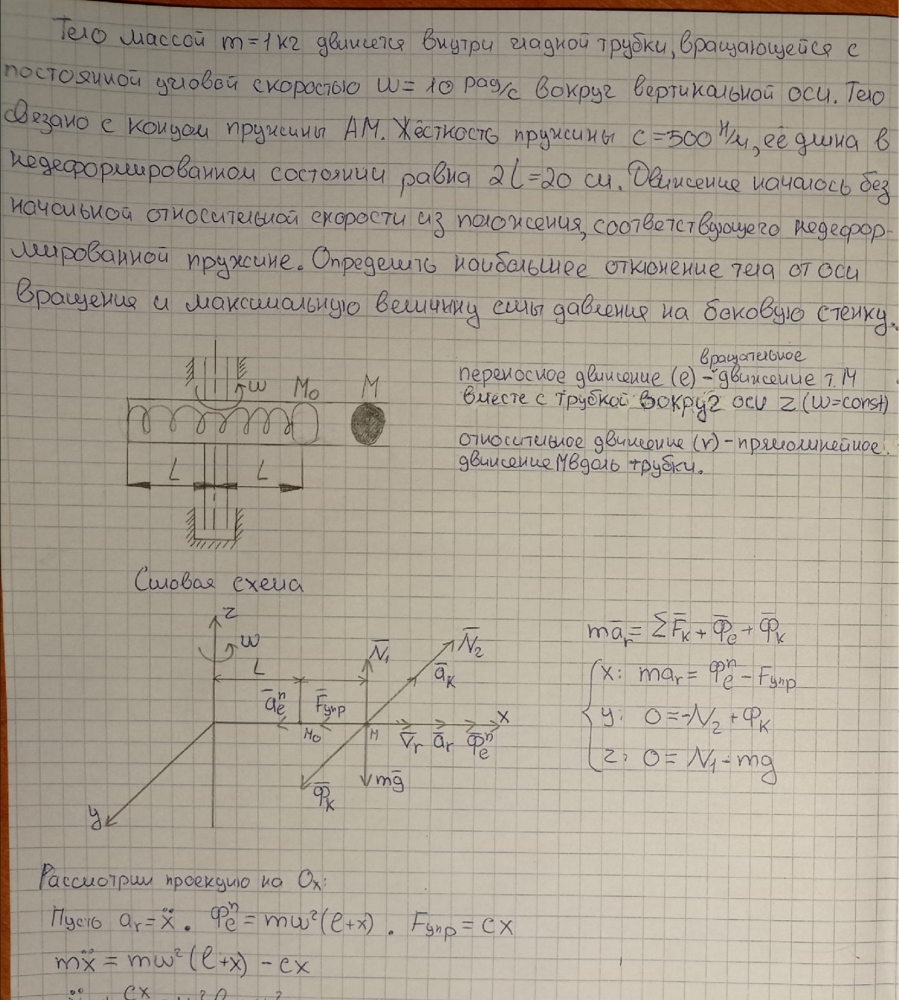 Тело массой m=1кг движется внутри гладкой трубки, вращающейся с
постоянной угловой скоростью ω=10 рад/с вокруг вертикальной оси. Тело
связано с концом пружины АМ. Жёсткость пружины c=500 Н/м, её длина в
недеформированном состоянии равна 2l=20 см. Движение началось без
начальной относительной скорости из положения, соответствующего недефор-
мированной пружине. Определить наибольшее отклонение тела от оси
вращения и максимальную величину силы давления на боковую стенку.
ω M₀ M
L L
вращательное
переносное движение (e) - движение т. М
вместе с трубкой вокруг оси z (ω=const)
относительное движение (r) - прямолинейное
движение М вдоль трубки.
Силовая схема
z
ω
L
N̄₁ N̄₂
ā_к
ā_e^n F̄_упр
M₀ M v̄_r ā_r Φ̄_e^n x
Φ̄_к mḡ
y
mā_r = ΣF̄_к + Φ̄_e + Φ̄_к
x: ma_r = Φ_e^n - F_упр
y: 0 = -N₂ + Φ_к
z: 0 = N₁ - mg
Рассмотрим проекцию на Ox:
Пусть a_r = ẍ. Φ_e^n = mω²(l+x). F_упр = cx
mẍ = mω²(l+x) - cx